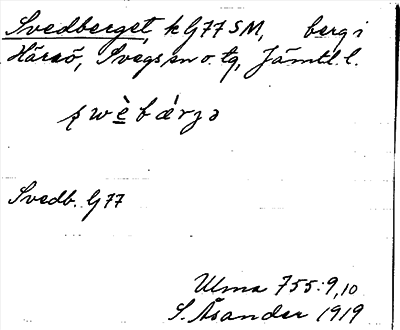 Svedberget, k G77SM, berg i
Härsö, Svegs sn o. tg, Jämtl. l.
ʂwὲbǽrʒə
Svedb. G77
Ulma 755:9,10
S. Åsander 1919